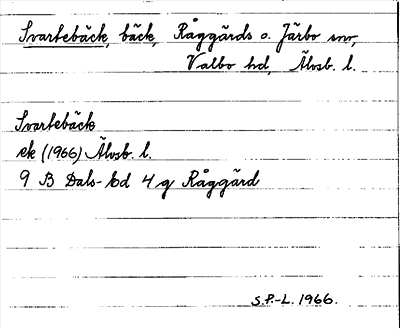 Svartebäck, bäck, Råggärds o. Järbo snr,
Valbo hd, Älvsb. l.
Svartebäck
ek (1966) Älvsb. l.
9 B Dals-Ed 4 g Råggärd
S.P.-L. 1966.